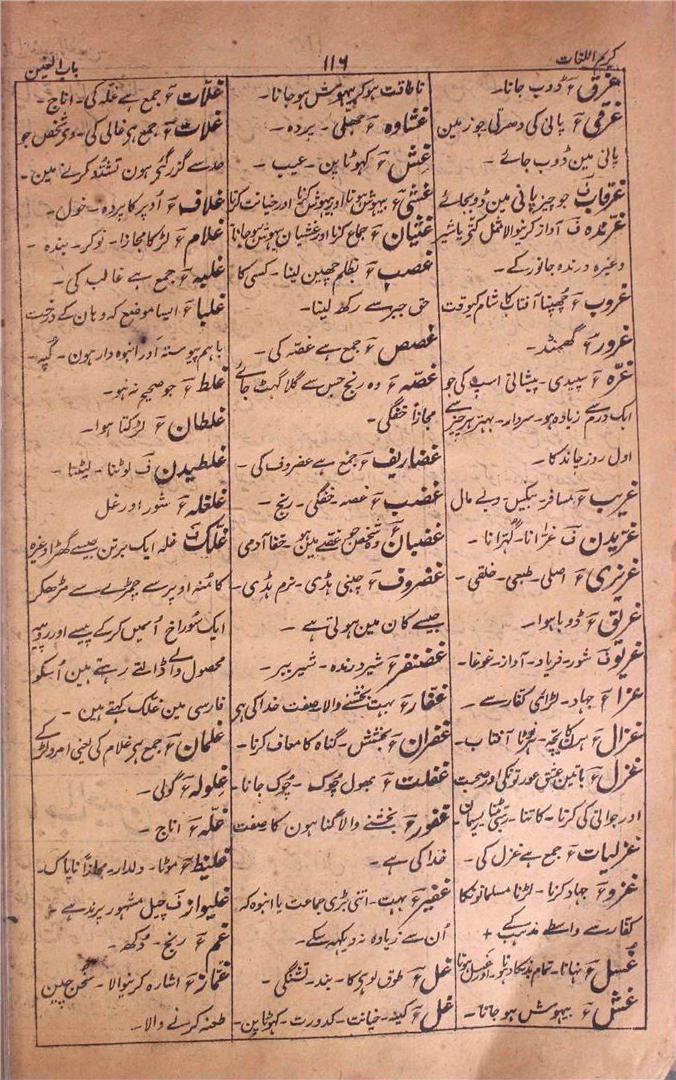 کریم اللغات
۱۱۶
باب الغین
غرق ع ڈوب جانا۔
غرقی ع پانی کی دھرتی جو زمین
پانی مین ڈوب جائے ۔
غرقاب ف جو چیز پانی مین ڈوبجائے
غرندہ ف آواز کرنیوالا مثل کتی یا شیر
وغیرہ درندہ جانور کے۔
غروب ع چھپنا آفتاب کا شام کیوقت
غرور ع گھمنڈ۔
غرہ ع سپیدی۔ پیشانی اسپ کی جو
ایک درم سے زیادہ ہو۔ سردار۔ بہتر ہر چیز سے
اول روز چاند کا۔
غریب ع مسافر۔ بیکس۔ دبے مال
غریدن ف غرّانا۔
غریزی ع اصلی۔ طبعی۔ خلقی ۔
غریق ع ڈوبا ہوا۔
غریو ف شور۔ فریاد۔ آواز۔ غوغا۔
غزا ع جہاد۔ لڑائی کفار سے ۔
غزال ع ہرن کا بچہ۔ آفتاب۔
غزل ع باتین عشق عورتونکی اور صحبت
اور جوانی کی کرنا۔ کاتنا۔
غزلیات ع جمع ہے غزل کی۔
غزو ع جہاد کرنا۔ لڑنا مسلمانونکا
کفار سے واسطے مذہب کے ٭
غسل ع نہانا۔ تمام بدنکا دہونا۔
غش ع بیہوش ہو جانا۔
ناطاقت ہوکر بیہوش ہو جانا۔
غشاوہ ع جھلی ۔ پردہ ۔
غش ع کہوٹا پن ۔ عیب ۔
غشی ع بیہوش ہونا اور بیہوش کرنا اور خیانت کرنا
غشیان ع جماع کرنا اور غشیان بیہوش ہو جانا
غصب ع بظلم چھین لینا۔ کسی کا
حق جبر سے رکھ لینا۔
غصص ع جمع ہے غصہ کی ۔
غصہ ع وہ رنج جس سے گلا گہٹ جائے
مجازاً خفگی۔
غضاریف ع جمع ہے غضروف کی ۔
غضب ع غصہ ۔ خفگی ۔ رنج ۔
غضبان ع وہ شخص جو غصے مین ہو ۔ خفا آدمی
غضروف ع چبنی ہڈی۔ نرم ہڈی۔
جیسے کان مین ہوتی ہے ۔
غضنفر ع شیر درندہ۔ شیر ببر۔
غفار ع بہت بخشنے والا۔ صفت خدا کی ہی
غفران ع بخشش۔ گناہ کا معاف کرنا۔
غفلت ع بھول چوک ۔ چوک جانا۔
غفور ع بخشنے والا گناہون کا صفت
خدا کی ہے ۔
غفیر ع بہت۔ اتنی بڑی جماعت یا انبوہ کہ
اُن سے زیادہ نہ دیکہہ سکے۔
غل ع طوق لوہی کا۔ بند۔ تشنگی ۔
غل ع کینہ۔ خیانت۔ کدورت۔ کہوٹا پن۔
غلات ع جمع ہے غلہ کی۔ اناج۔
غلات ع جمع ہی غالی کی۔ وہ شخص جو
حد سے گزر گئی ہون تشدد کرنے مین۔
غلاف ع اُوپر کا پردہ۔ خول۔
غلام ع لڑکا مجازاً۔ نوکر۔ بندہ ۔
غلبہ ع جمع ہے غالب کی۔
غلبا ع ایسا موضع کہ وہان کے درخت
باہم پیوستہ اور انبوہ دار ہون۔
غلط ع جو صحیح نہ ہو۔
غلطان ع لڑکتا ہوا۔
غلطیدن ف لوٹنا ۔ لیٹنا ۔
غلغلہ ع شور اور غل
غلک ف غلہ ایک برتن جیسے گھڑا وغیرہ
کا منہ اوپر سے چمڑے سے مڑھکر
ایک سُوراخ اُسمین کرکے پیسے اور روپیہ
محصول والے ڈالتے رہتے ہین اُسکو
فارسی مین غلک کہتے ہین ۔
غلمان ع جمع ہی غلام کی یعنی امرد لڑکے
غلولہ ع گولی۔
غلہ ع اناج ۔
غلیظ ع موٹا۔ دلدار۔ مجازاً ناپاک۔
غلیواز ف چیل مشہور پرند ہے ۔
غم ع رنج ۔ دُکھ۔
غماز ع اشارہ کرنیوالا۔ سخن چین
طعنہ کرنے والا۔